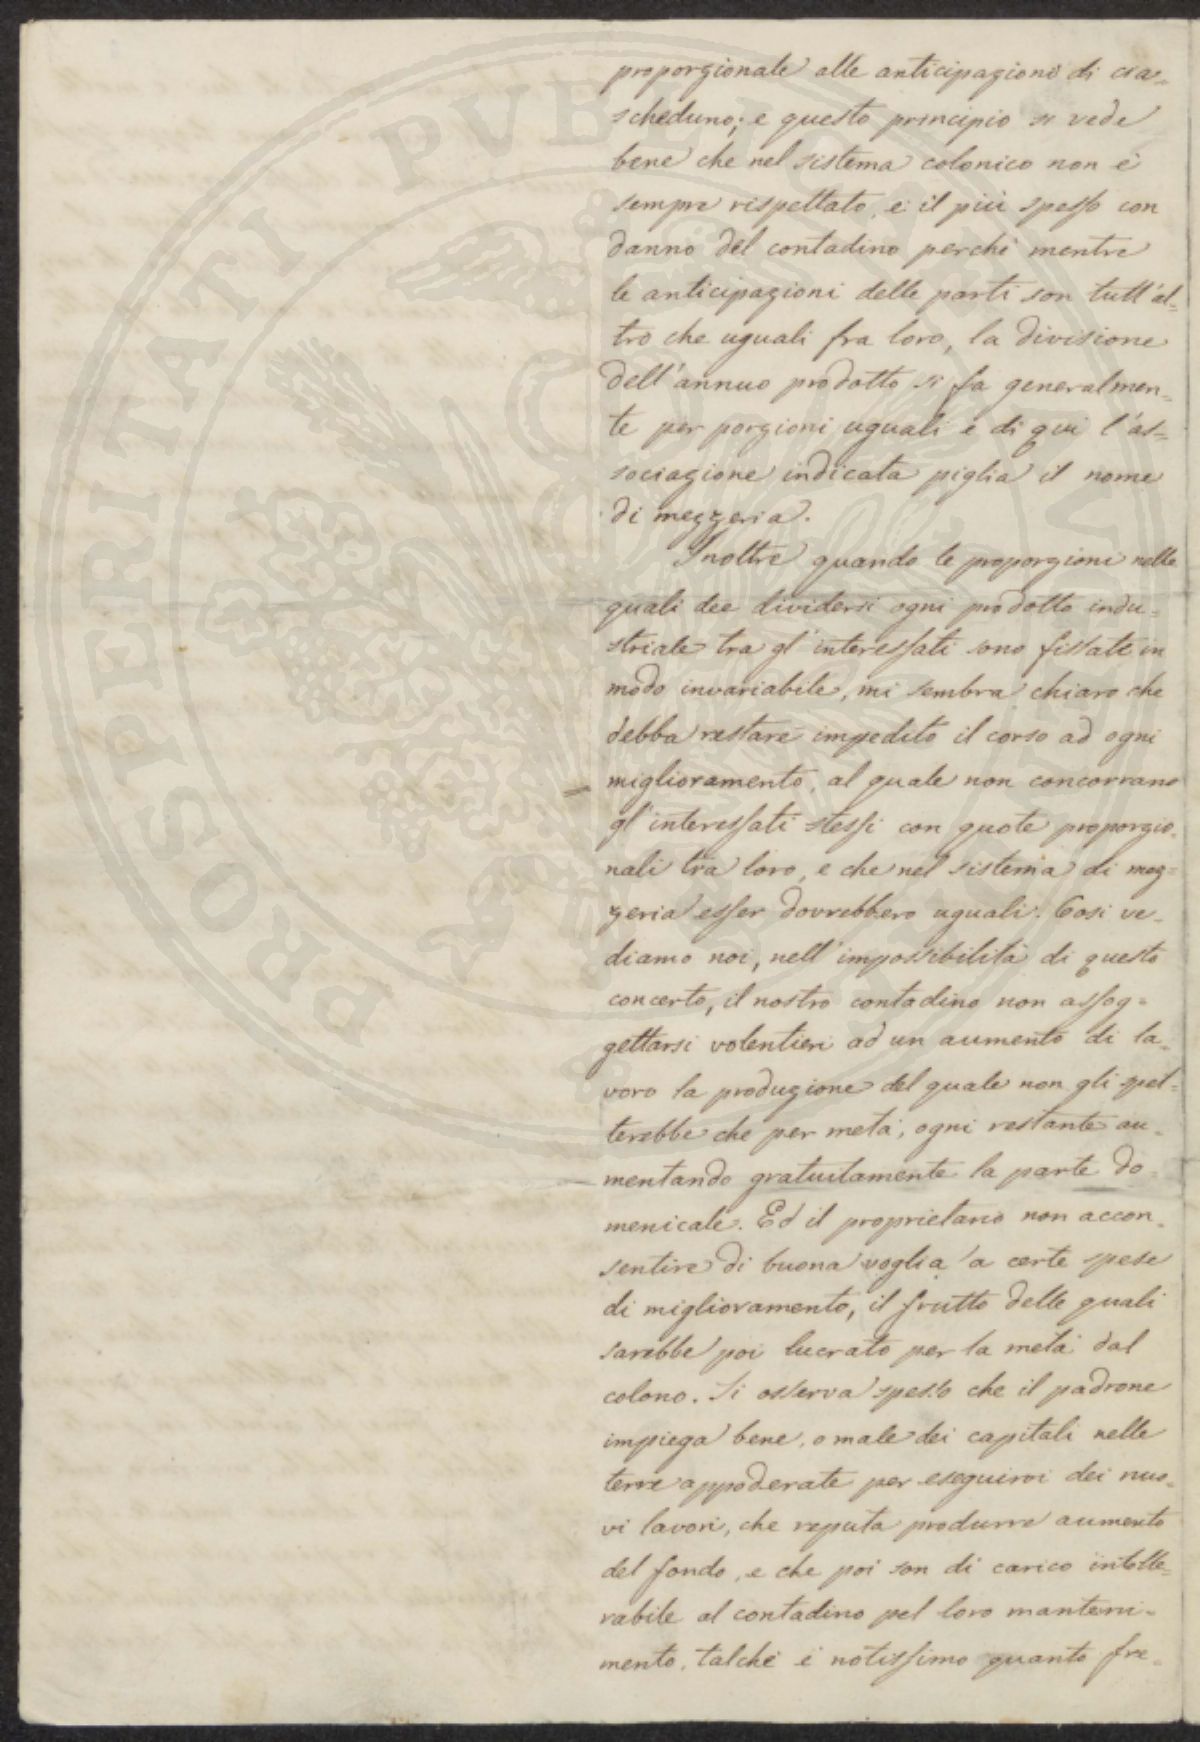 proporzionale alle anticipazioni di cia-
scheduno; e questo principio si vede
bene che nel sistema colonico non è
sempre rispettato, e il più spesso con
danno del contadino perchè mentre
le anticipazioni delle parti son tutt'al-
tro che uguali fra loro, la divisione
dell'annuo prodotto si fa generalmen-
te per porzioni uguali e di qui l'as-
sociazione indicata piglia il nome
di mezzeria.
Inoltre quando le proporzioni nelle
quali dee dividersi ogni prodotto indu-
striale tra gl'interessati sono fissate in
modo invariabile, mi sembra chiaro che
debba restare impedito il corso ad ogni
miglioramento, al quale non concorrano
gl'interessati stessi con quote proporzio-
nali tra loro, e che nel sistema di mez-
zeria esser dovrebbero uguali. Così ve-
diamo noi, nell'impossibilità di questo
concerto, il nostro contadino non assog-
gettarsi volentieri ad un aumento di la-
voro la produzione del quale non gli spet-
terebbe che per metà, ogni restante au-
mentando gratuitamente la parte do-
menicale. Ed il proprietario non accon-
sentire di buona voglia a certe spese
di miglioramento, il frutto delle quali
sarebbe poi lucrato per la metà dal
colono. Si osserva spesso che il padrone
impiega bene, o male dei capitali nelle
terre appoderate per eseguirvi dei nuo-
vi lavori, che reputa produrre aumento
del fondo, e che poi son di carico intolle-
rabile al contadino pel loro manteni-
mento, talchè è notissimo quanto fre-
PROSPERITATI PVBLICAE